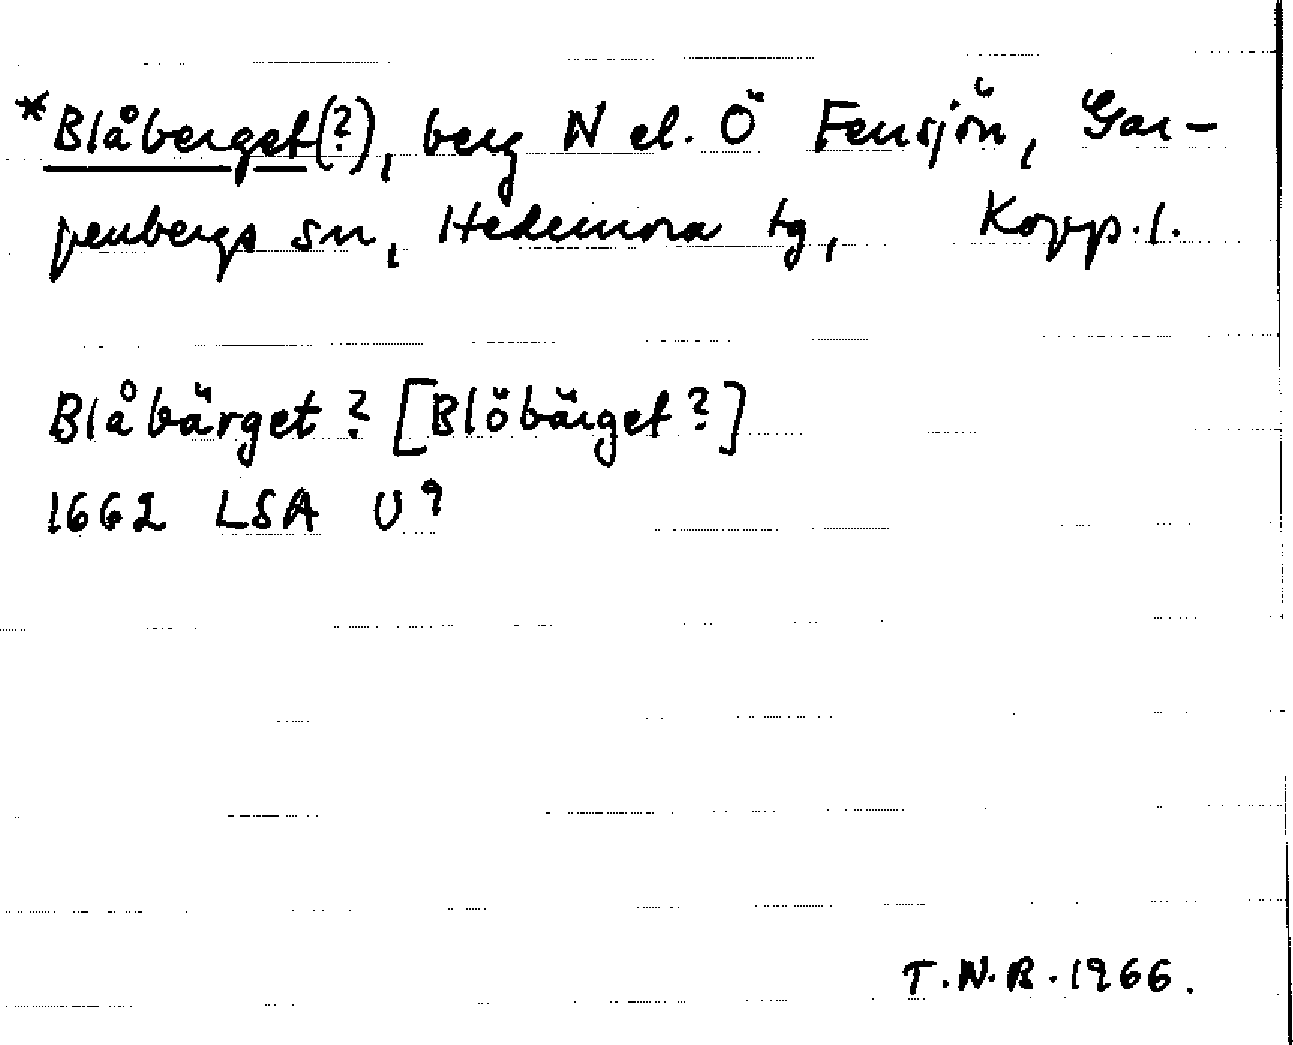 *Blåberget(?), berg N el. Ö Fensjön, Gar-
penbergs sn, Hedemora tg, Kopp. l.
Blåbärget? [Blöbärget?]
1662 LSA U9
T.N.R. 1966.